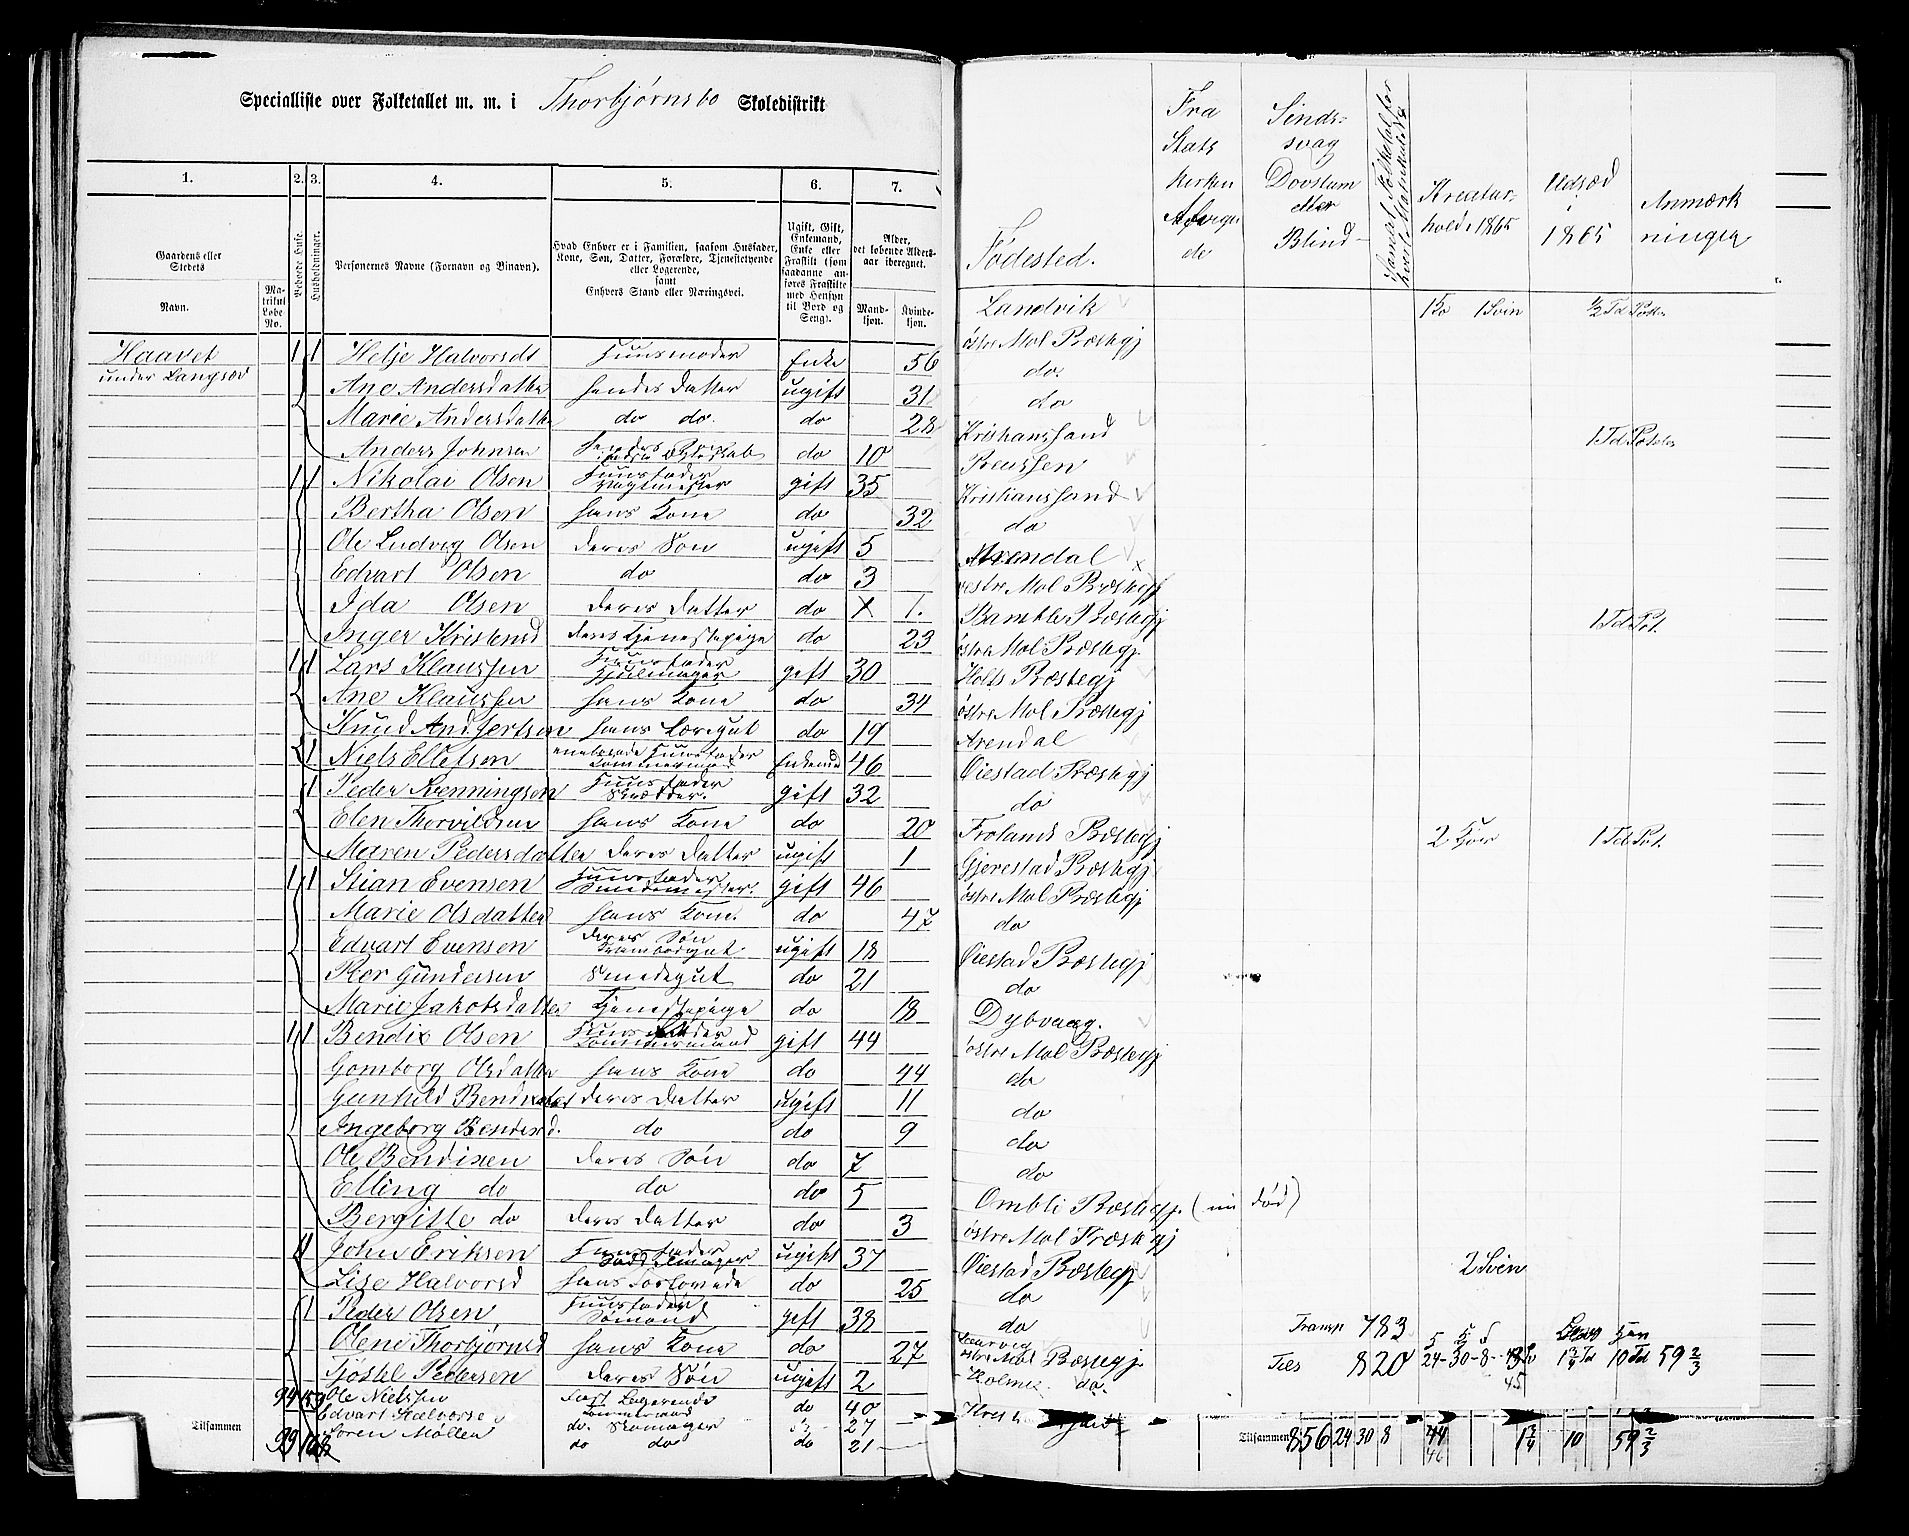 Specialliste over Folketallet m. m. i Thorbjørnsbo Skoledistrikt
1. 2. 3. 4. 5. 6. 7.
Gaardens eller Stedets
Navn.
Matrikul Løbe No.
Beboede Huse.
Husholdninger.
Personernes Navne (Fornavn og Binavn).
Hvad Enhver er i Familien, saasom Husfader, Kone, Søn, Datter, Forældre, Tjenestetyende eller Logerende, samt Enhvers Stand eller Næringsvei.
Ugift, Gift, Enkemand, Enke eller Fraskilt (som saadanne anføres Fraskilte med Hensyn til Bord og Seng).
Alder, det løbende Aldersaar iberegnet.
Mandkjøn. Kvindekjøn.
Fødested.
Fra Stats Kirken Afvigende
Sindssvag Døvstum eller Blind
Kreaturhold i 1865
Udsæd i 1865
Anmærkninger
Haavet 1 1 Helje Halvorsdt Huusmoder Enke 56 Landvik 1 Svin ½ Td
under Langsæd Ane Andersdatter hendes Datter ugift 31 østre Mol Præstegj
Maree Andersdatter do do. do 28 do.
Anders Johnsen do 10 do
1 1 Nikolai Olsen Huusfader gift 35 Kristianssand 1 Td
Bertha Olsen hans Kone do 32 Preussen
Ole Ludvig Olsen deres Søn ugift 5 Kristianssand
Edvart Olsen do do 3 do
Ida Olsen deres Datter do 1. Arendal
Inger Kristensd deres Tjenestepige do 23 vestre Mol Præstegj
1 1 Lars Klaussen Huusfader Hjulmager gift 30 Bamble Præstegj 1 Td Pot.
Ane Klaussen hans Kone do 34 østre Mol Præstegj
Knud Andsertsen hans Læregut do 19 Holts Præstegj
2 1 Niels Ellefsen Huusfader Tømmermand Enkemd 46 østre Mol Præstegj
1 Peder Svenningsen Huusfader Skrædder. gift 32 Arendal
Elen Thorvildsen hans Kone do 20 Øiestad Præstegj
Maren Pedersdatter deres Datter ugift 1 do
1 1 Stian Evensen Huusfader Smedemester. gift 46 Frolands Præstegj 2 Kjør 1 Td Pot.
Marie Olsdatter hans Kone. do 47 Gjerestad Præstegj
Edvart Evensen deres Søn ugift 18 østre Mol Præstegj
Per Gundersen Smedegut do 21 do
Marie Jakobsdatter Tjenestepige do 18 Øiestad Præstegj
1 1 Bendix Olsen Huusfader Tømmermand gift 44 do
Gomborg Olsdatter hans Kone do 44 Dybvaag.
Gunhild deres Datter ugift 11 østre Mol Præstegj
Ingeborg do do 9 do
Ole Bendixen deres Søn do 7 do
Elling do do do 5 do
Bergitte do deres Datter do 3 do
John Eriksen Huusfader Sadelmager ugift 37 Ombli Præstegj. (nu død)
Lise Halvorsd hans Forlovede do 25 østre Mol Præstegj
1 Peder Olsen Huusfader Sømand gift 38 Øiestad Præstegj 2 Svin
Olene Thorbjørnsd hans Kone do 27 do
Tjøstel Pedersen deres Søn ugift 2 do
Ole Nielssen Logerende Tømmermand do 40
Edvart do. Skomager 27
Søren Møller do do do 21
Transp 783
Tils 820 24-30-8 10 Td 59 2/3
Tilsammen
Tilsammen 856 24 30 8 44 10 59 2/3
46